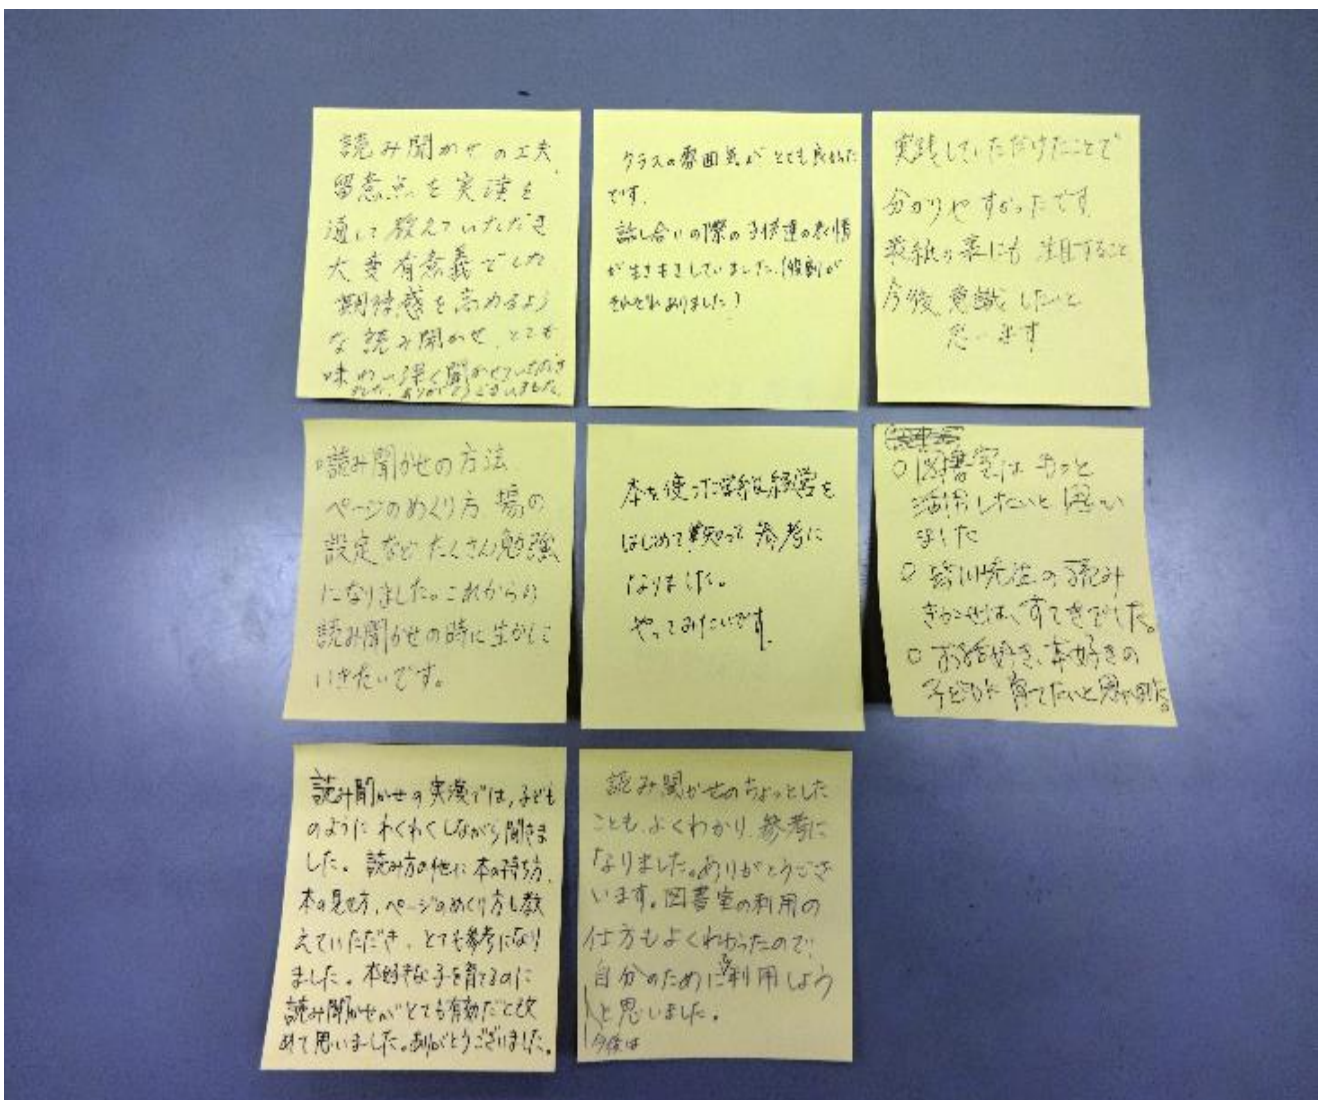 読み聞かせの工夫、
留意点を実演を
通して教えていただき
大変有意義でした
期待感を高めるよう
な読み聞かせ、とても
味わい深く聞かせていただき
ました。ありがとうございました。
クラスの雰囲気がとても良かった
です。
話し合いの際の子供達の表情
が生き生きしていました。(役割が
それぞれありました)
実践していただけたことで
分かりやすかったです
表紙の裏にも注目すること
今後意識したいと
思います
・読み聞かせの方法
ページのめくり方、場の
設定など、たくさん勉強
になりました。これからの
読み聞かせの時に生かして
いきたいです。
本を使った学級経営を
はじめて知って参考に
なりました。
やってみたいです。
○図書室はもっと
活用したいと思い
ました
○ 先生の読み
きかせは、すてきでした。
○ お話好き、本好きの
子どもに育てたいと思いました。
読み聞かせの実演では、子ども
のようにわくわくしながら聞きま
した。読み方の他に本の持ち方、
本の見せ方、ページのめくり方も教
えていただき、とても参考になり
ました。本好きな子を育てるのに
読み聞かせがとても有効だと改
めて思いました。ありがとうございました。
読み聞かせのちょっとした
ことも、よくわかり、参考に
なりました。ありがとうござ
います。図書室の利用の
仕方もよくわかったので、
自分のために利用しよう
と思いました。
今後は